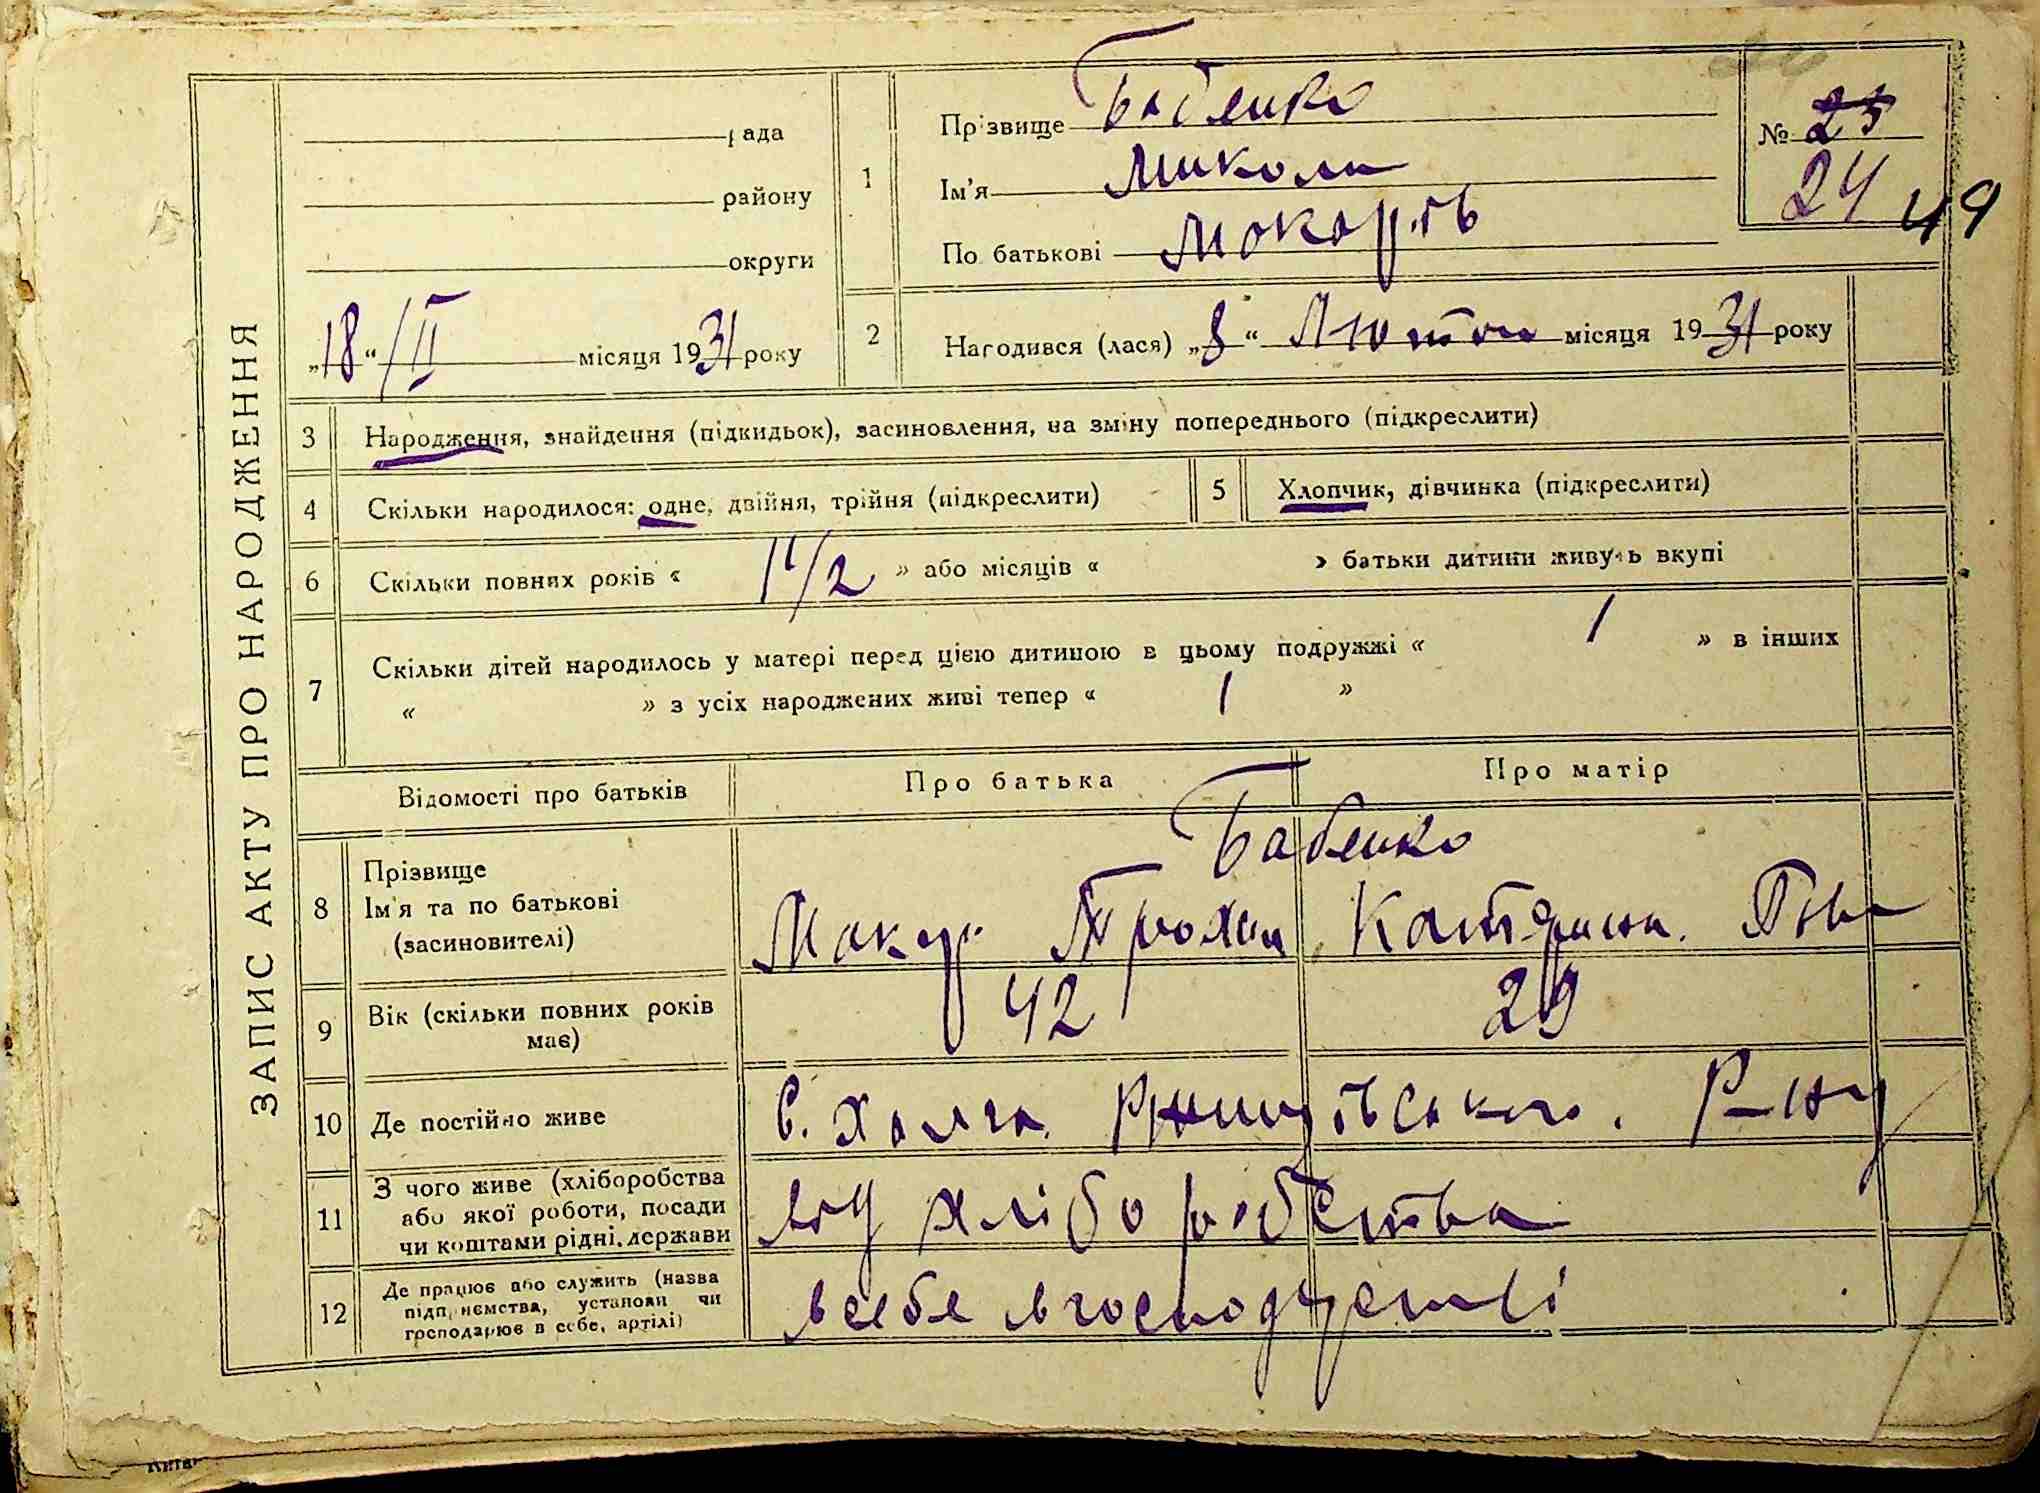 ЗАПИС АКТУ ПРО НАРОДЖЕННЯ
рада
району
округи
„18“ /II місяця 1931 року
1
Прізвище Бабенко
Ім'я Микола
По батькові
№ 25
24
49
2
Народився (лася) „8“ Лютого місяця 1931 року
3 Народження, знайдення (підкидьок), засиновлення, на зміну попереднього (підкреслити)
4 Скільки народилося: одне, двійня, трійня (підкреслити)
5 Хлопчик, дівчинка (підкреслити)
6 Скільки повних років « 1 1/2 » або місяців « » батьки дитини живуть вкупі
7 Скільки дітей народилось у матері перед цією дитиною в цьому подружжі « 1 » в інших
« » з усіх народжених живі тепер « 1 »
Відомості про батьків Про батька Про матір
8 Прізвище
Ім'я та по батькові
(засиновителі)
Бабенко
Макар Трохим Катерина
9 Вік (скільки повних років
має)
42 29
10 Де постійно живе
с. Халча Ржищівського Р-ну
11 З чого живе (хліборобства
або якої роботи, посади
чи коштами рідні, держави
хліборобства
12 Де працює або служить (назва
підприємства, установи чи
господарює в себе, артілі)
в себе в господарстві
Київ